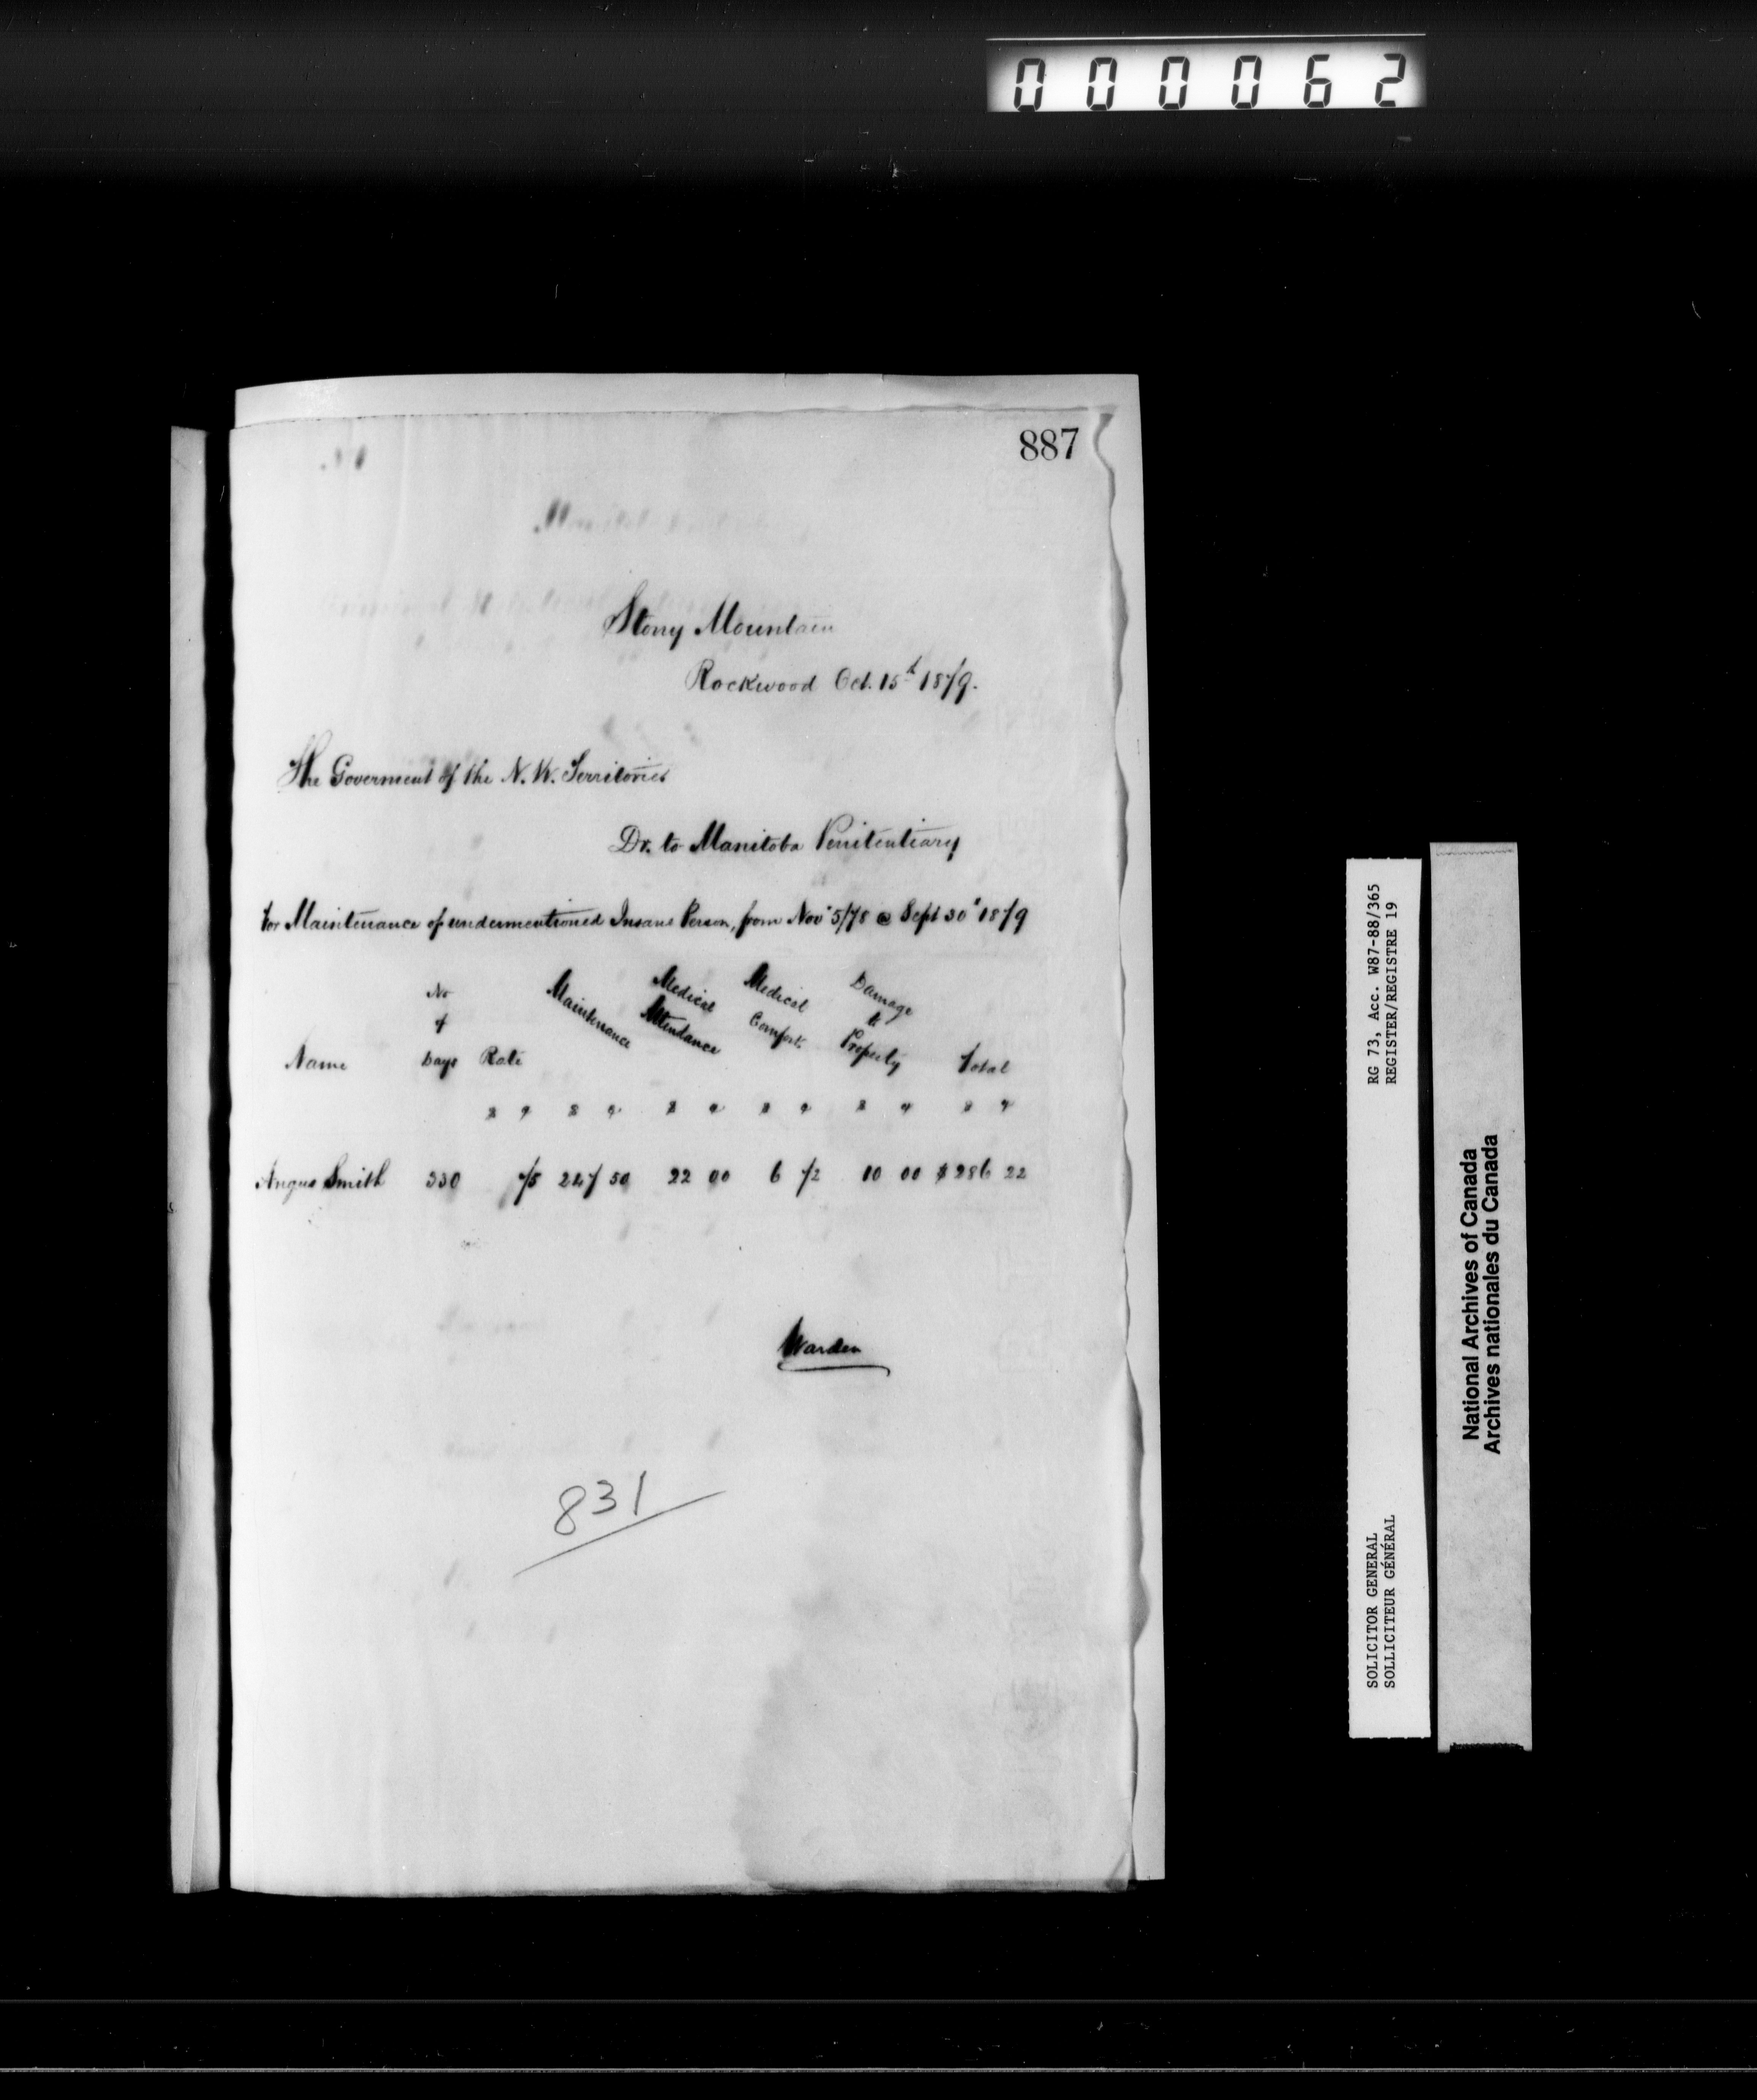 000062
887
Stony Mountain
Rockwood Oct. 15th 1879.
The Goverment of the N.W. Territories
Dr. to Manitoba Penitentiary
For Maintenance of undermentioned Insane Person, from Nov 5/78 @ Sept 30th 1879
Name No of Days Rate Maintenance Medical Attendance Medical Comfort Damage to Property Total
$ c $ c $ c $ c $ c $ c
Angus Smith 330 75 247 50 22 00 6 72 10 00 $ 286 22
Warden
831
RG 73, Acc. W87-88/365
REGISTER/REGISTRE 19
SOLICITOR GENERAL
SOLLICITEUR GÉNÉRAL
National Archives of Canada
Archives nationales du Canada